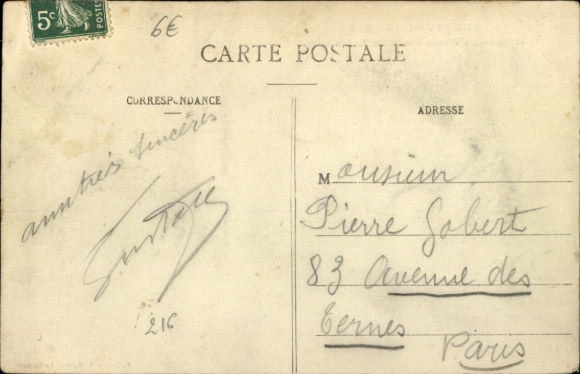 5c
POSTES
6€
CARTE POSTALE
CORRESPONDANCE
ADRESSE
sincères
Gustave
216
Monsieur
Pierre Gobert
83 Avenue des
Ternes
Paris